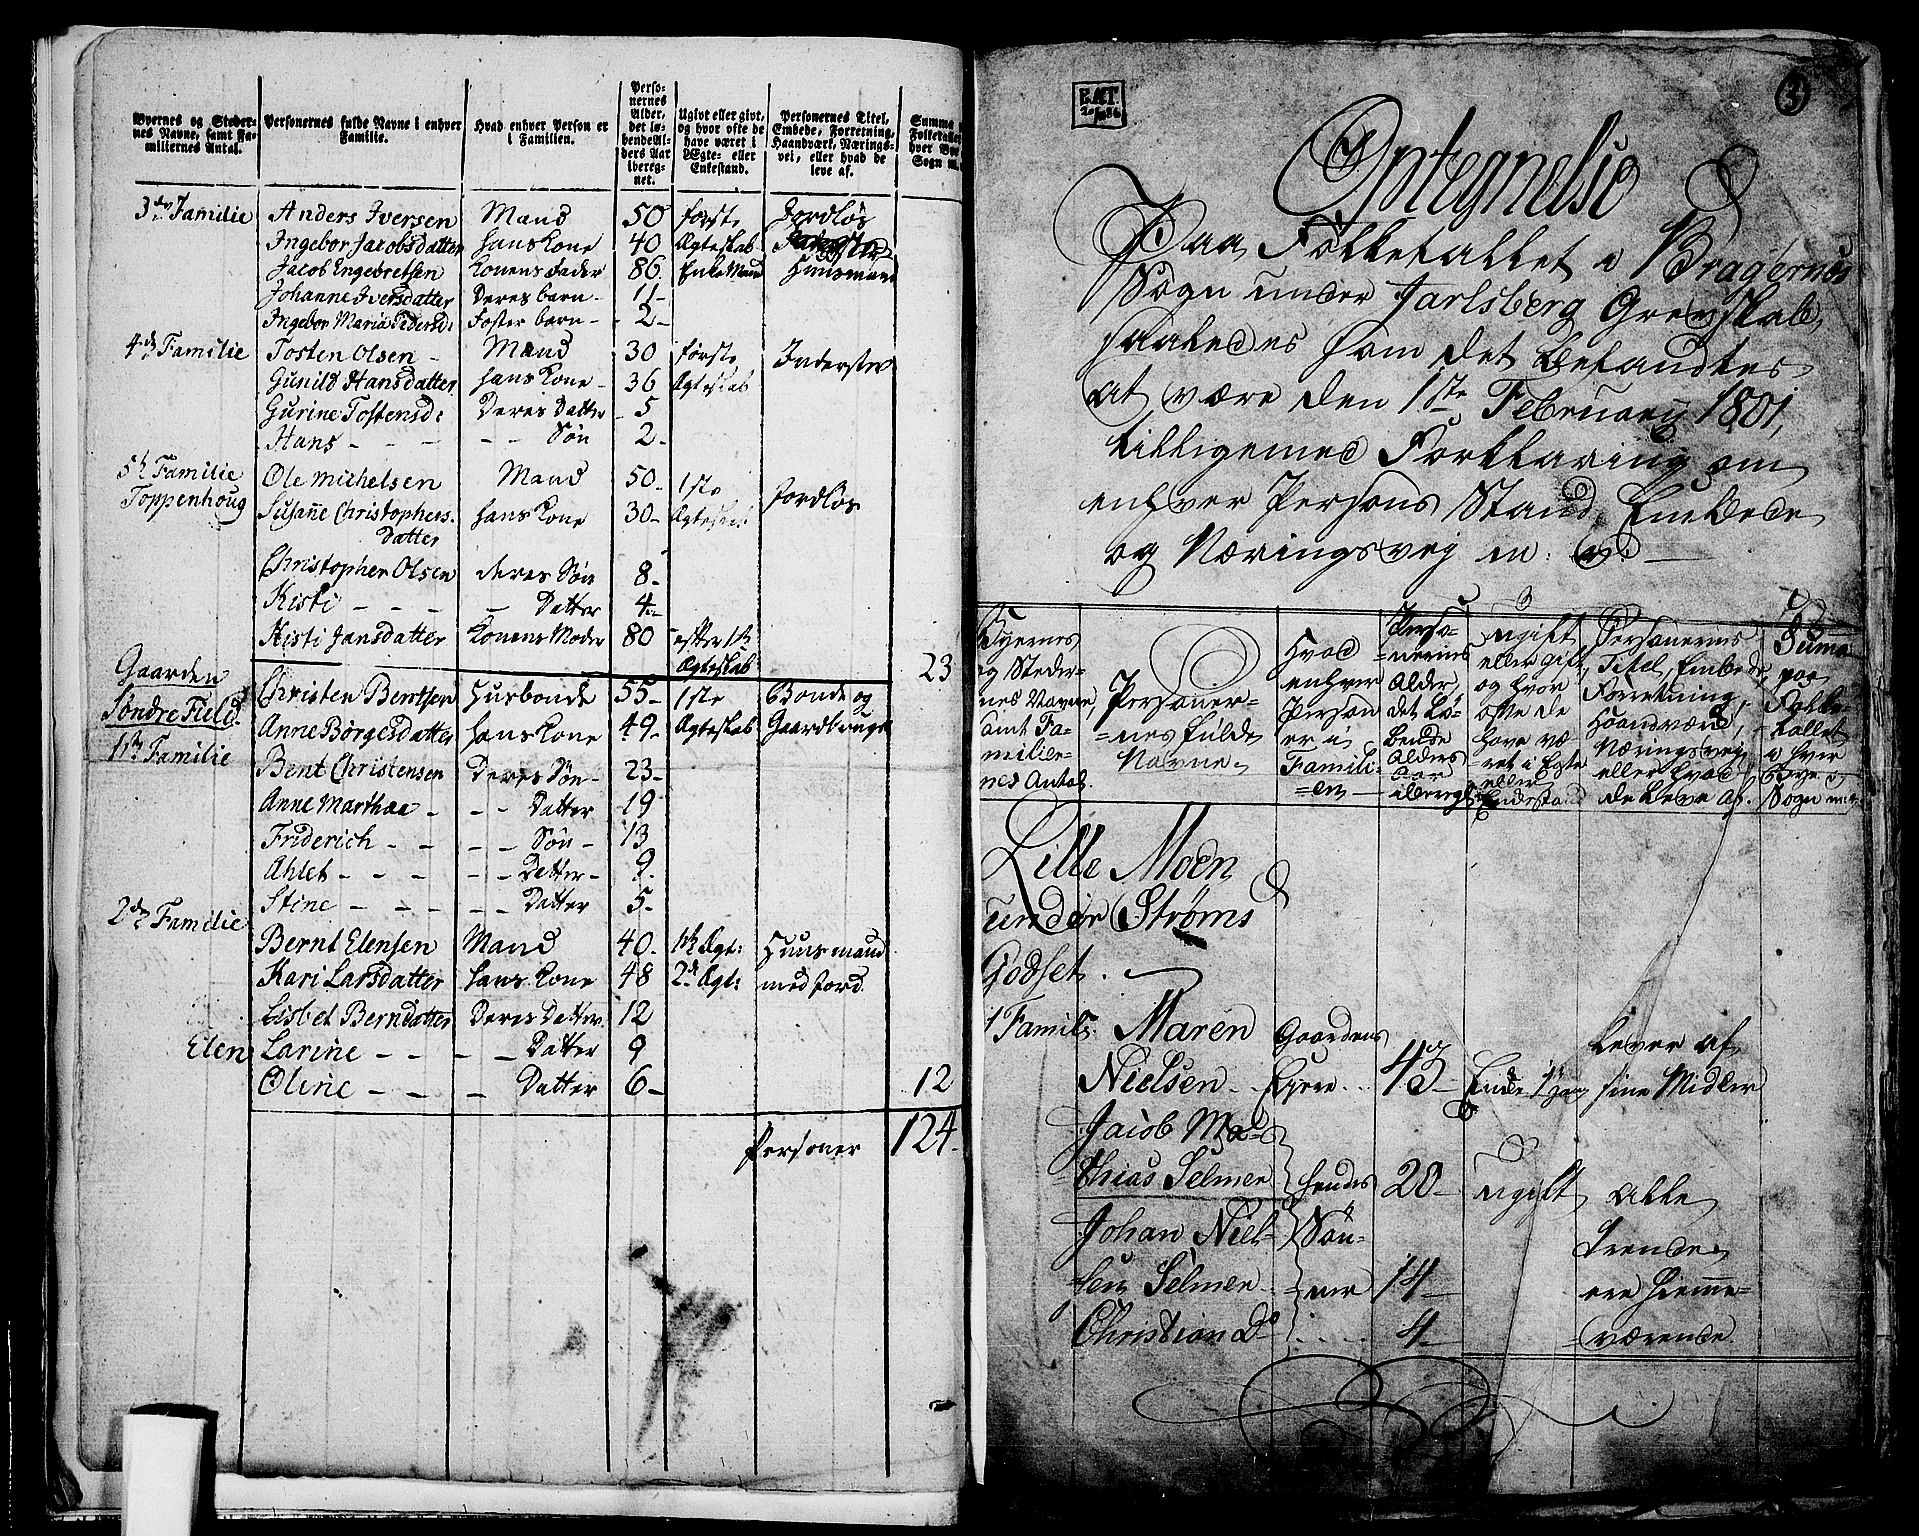 Byernes og Stedernes Navne, samt Familiernes Antal.
Personernes fulde Navne i enhver Familie.
Hvad enhver Person er i Familien.
Personernes Alder, det løbende Alders Aar iberegnet.
Ugivt eller givt, og hvor ofte de have været i Ægte- eller Enkestand.
Personernes Titel, Embede, Forretning, Haandværk, Næringsvei, eller hvad de leve af.
Summa Folketallet hver Bye Sogn
3die Familie Anders Iversen Mand 50 første Jordløs
Ingebor Jacobsdatter hans Kone 40 Ægteskab
Jacob Engebretsen Konens Fader 86 Enke Mand Huusmand
Johanne Iversdatter Deres barn - 11 -
Ingebor Maria Pedersd: Foster barn - 2 -
4de Familie Tosten Olsen - Mand 30 første Inderster
Gunild Hansdatter hans Kone - 36 Ægteskab
Gurine Tostensd: Deres Datter - 5
Hans - - - - - Søn 2 -
5te Familie Ole Michelsen Mand 50 - 1ste Jordløs
Toppenhoug Susanne Christophers- hans Kone 30 - Ægteskab
datter
Christopher Olsen deres Søn 8 -
Kisti - - - - Datter 4 -
Kisti Jansdatter Konens Moder 80 efter 1ste
Ægteskab 23
Gaarden Christen Berntsen Husbonde 55 - 1ste Bonde og
Søndre Field Anne Børgesdatter hans Kone 49 - Ægteskab Gaardbruger
1ste Familie
Bent Christensen Deres Søn - 23 -
Anne Marthaa - - - Datter 19
Friderich - - - - Søn - 13
Ahlet - - - - Datter - 9
Stine - - - - - Datter 5 -
2den Familie
Bernt Elensen Mand 40 - 1ste Ægt: Huusmand
Kari Larsdatter hans Kone 48 2de Ægt: med Jord
Lisbet Berndatter Deres Datter 12
Elen Larine - - - - Datter 9
Oline - - - Datter 6 - 12
Personer 124 -
3
Optegnelse
Paa Folketallet i Bragernæs
Sogn under Jarlsberg Grevskab,
saaledes som det befandtes
at være den 1ste February 1801,
tilligemed Forklaring om
enhver Persons Stand, Embede
og Næringsvej m: v:
Byernes og Stedernes Navne, samt Familiernes Antal.
Personernes fulde Navne.
Hvad enhver Person er i Familien
Personernes Alder, det løbende Alders Aar iberegnet
Ugift eller gift, og hvor ofte de have været i Egte eller Enkestand
Personernes Titel, Embede, Forretning, Haandværk, Næringsvej eller hvad de leve af.
Suma paa Folketallet i hver Bye og Sogn
Lille Moen
under Strøms
Godset.
1 Famil: Maren Gaardens Lever af
Nielsen - Ejere - 43 - Enke 1 sine Midler
Jacob Ma-
thias Selmer hendes 20 - ugift alle
Johan Niel- Søn- trende
sen Selmer - ner 14 - ere hiemme-
Christian Do - 4 - værende